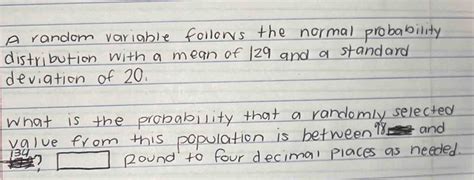 A random variable follows the normal probability
distribution with a mean of 129 and a standard
deviation of 20.
What is the probability that a randomly selected
value from this population is between 98 and
134? Round to four decimal places as needed.